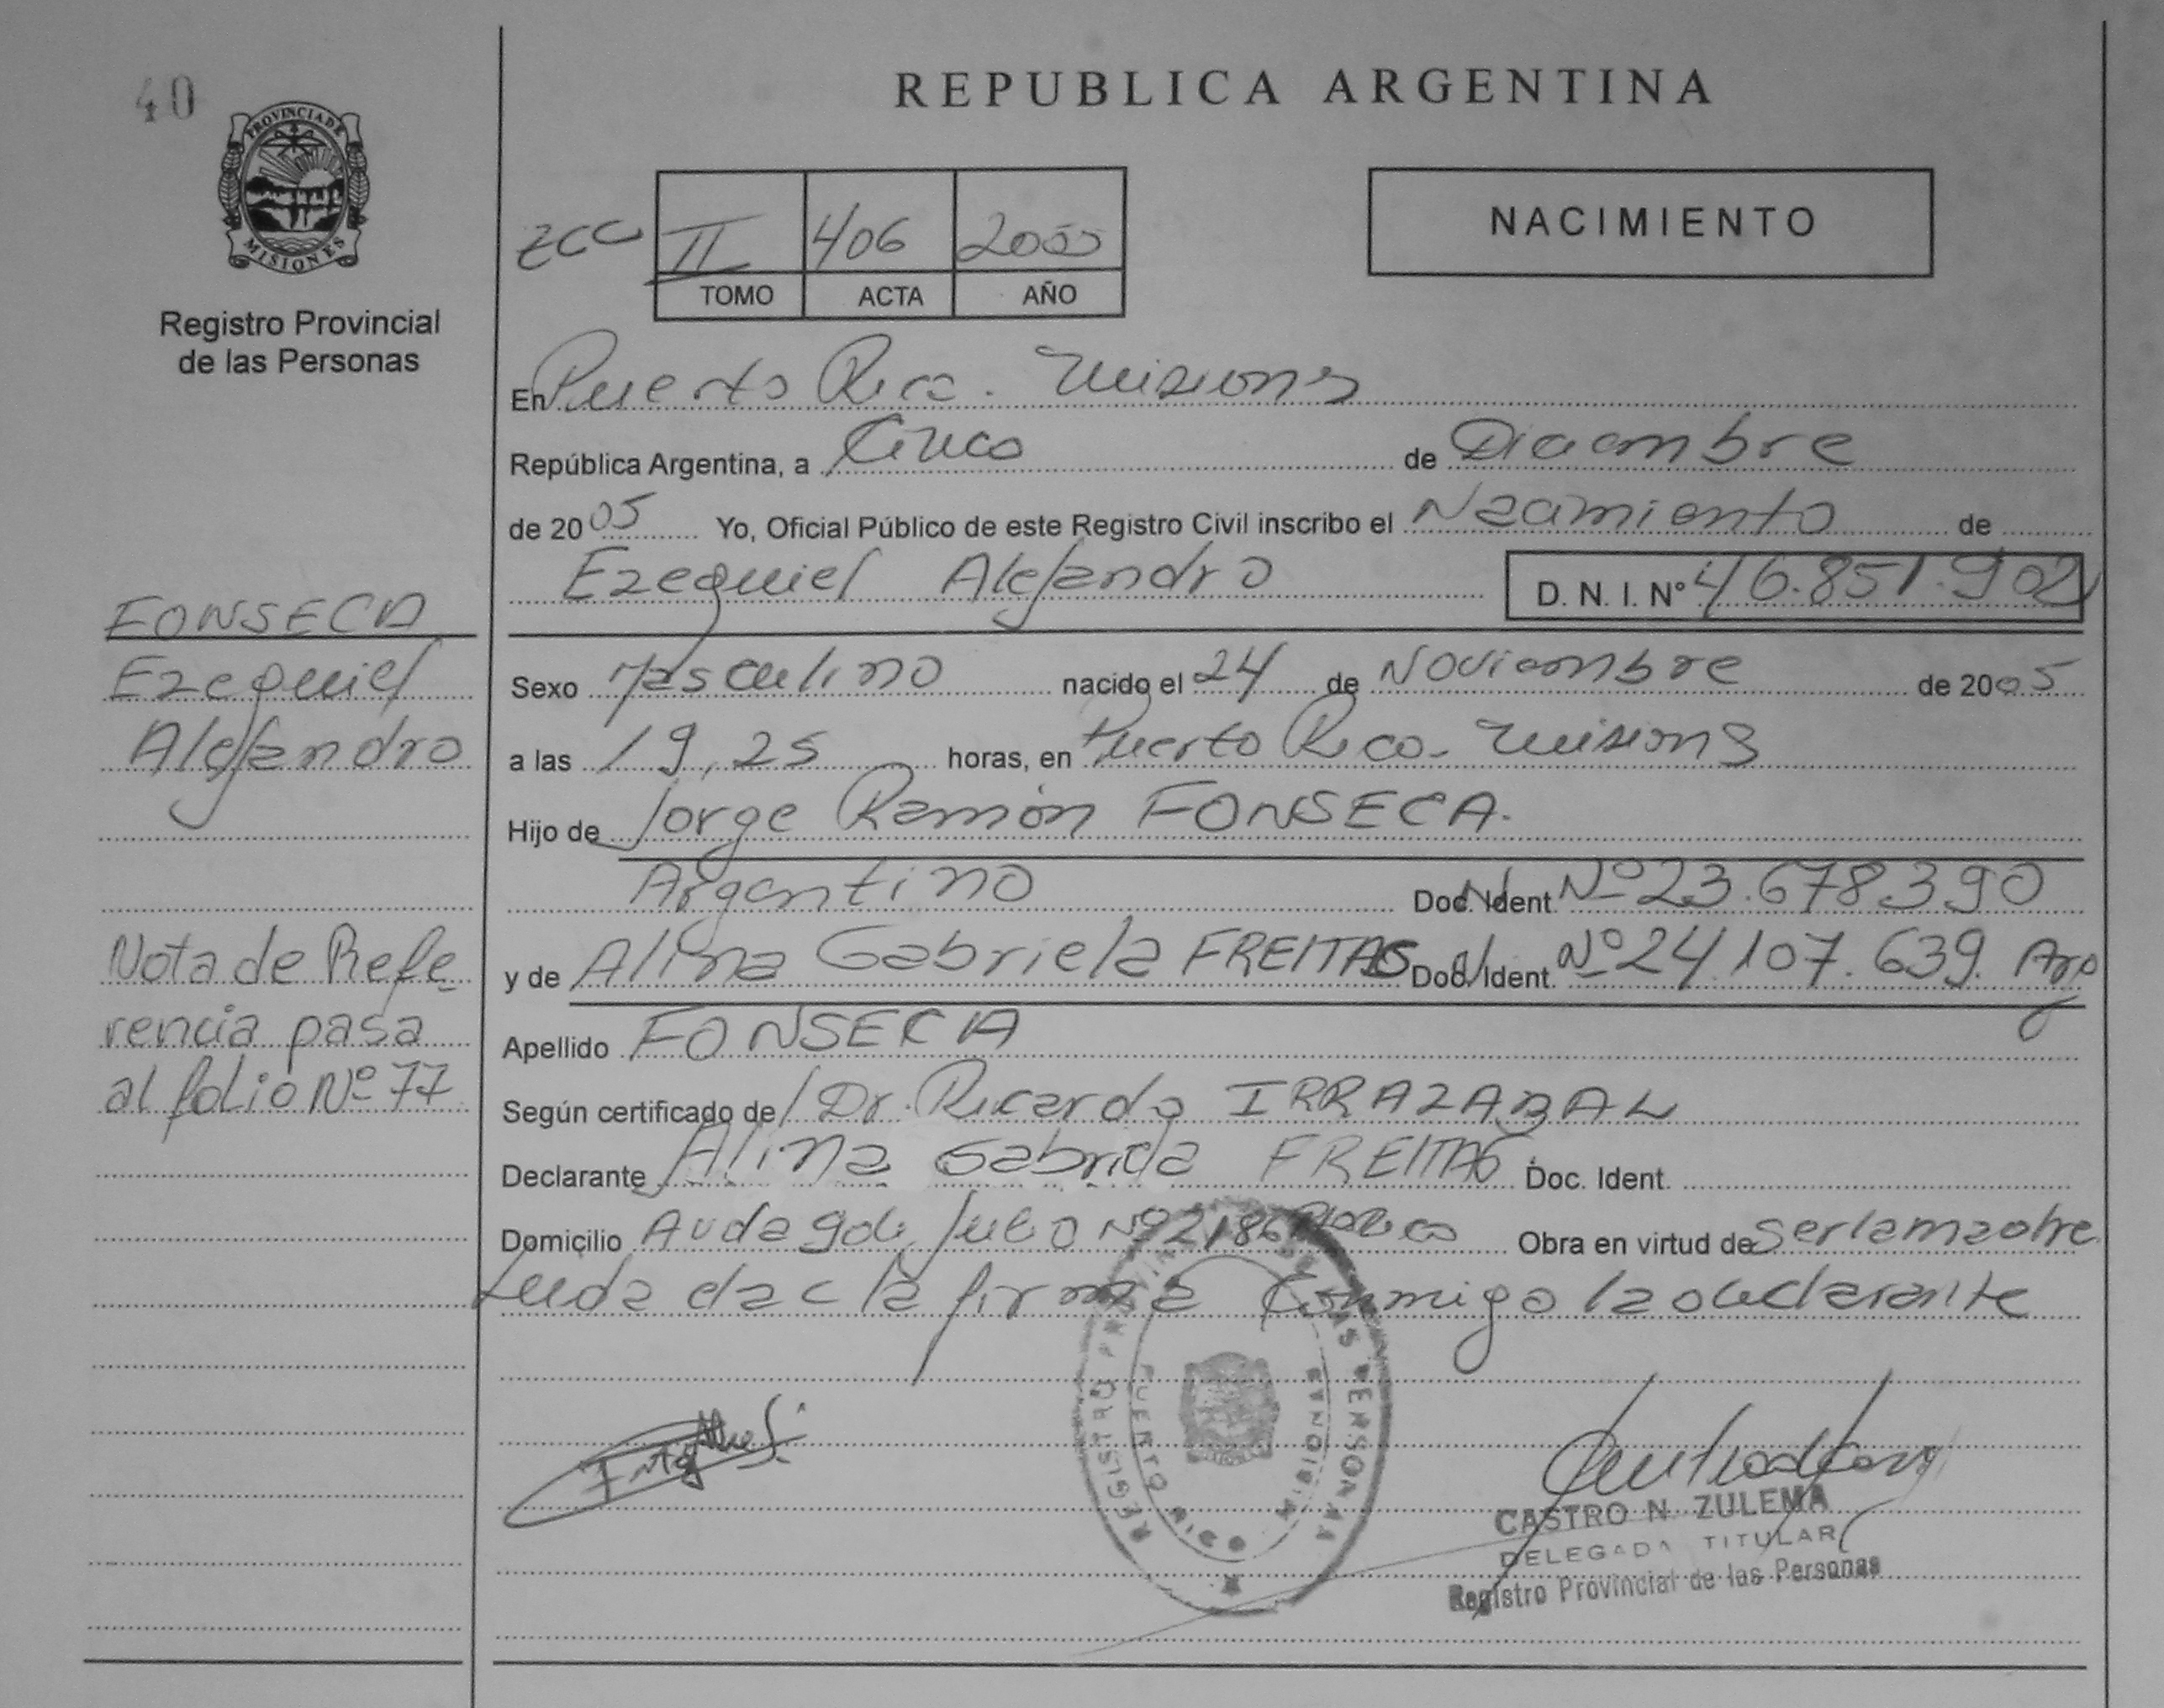 40
REPUBLICA ARGENTINA
PROVINCIA DE
MISIONES
Registro Provincial
de las Personas
II 406 2005
TOMO ACTA AÑO
NACIMIENTO
En Puerto Rico. Misiones
República Argentina, a Cinco de Diciembre
de 2005 Yo, Oficial Público de este Registro Civil inscribo el Nacimiento de
Ezequiel Alejandro D. N. I. Nº 46.851.902
FONSECA
Ezequiel
Alejandro
Sexo Masculino nacido el 24 de Noviembre de 2005
a las 19,25 horas, en Puerto Rico - Misiones
Hijo de Jorge Ramón FONSECA.
Argentino Doc. Ident. Nº 23.678.390
y de Alina Gabriela FREITAS Doc. Ident. Nº 24.107.639. Arg
Nota de Refe
rencia pasa
al folio Nº 77
Apellido FONSECA
Según certificado de Dr. Ricardo IRRAZABAL
Declarante Alina Gabriela FREITAS Doc. Ident.
Domicilio Avda 9 de Julio Nº 2186 Obra en virtud de ser la madre
Leida el acta firma Conmigo la declarante
REGISTRO PROVINCIAL DE LAS PERSONAS
PUERTO RICO MISIONES
CASTRO N. ZULEMA
DELEGADA TITULAR
Registro Provincial de las Personas